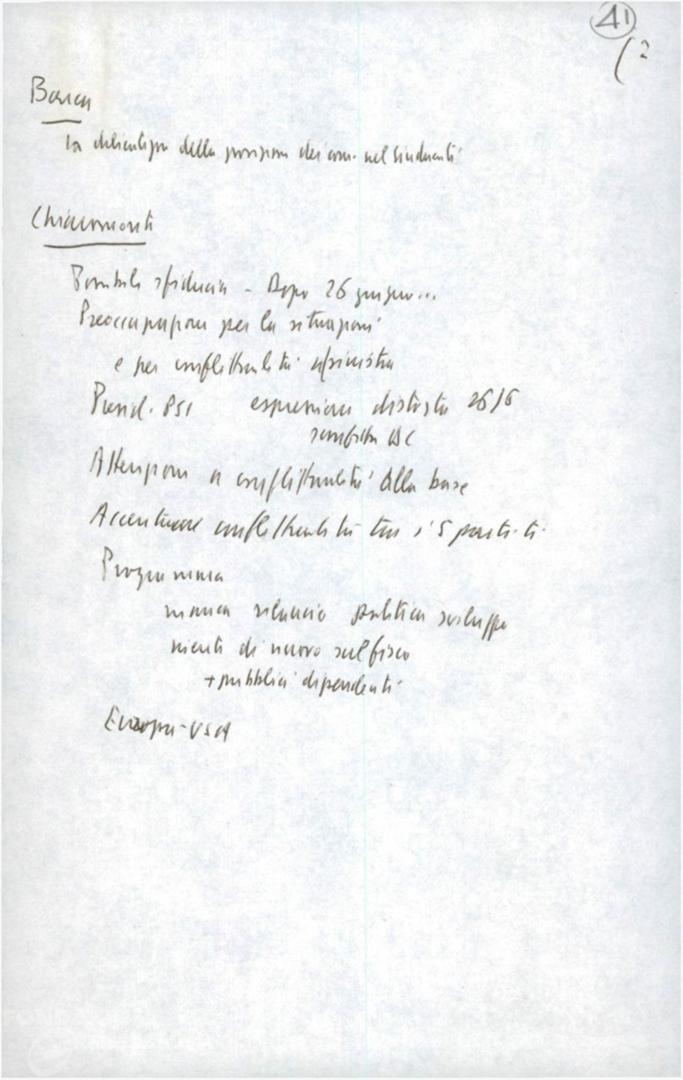 41
(2
Barca
la delicatezza della posizione dei com. nel sindacati
Chiaromonti
sfiducia - Dopo 26 giugno...
Preoccupazioni per la situazioni
e per conflittualità a sinistra
Presid. PSI espressione distorta 26/6
sconfitta DC
Attenzioni a conflittualità alla base
Accentuare conflittualità tra i 5 partiti
Programma
manca rilancio politica sviluppo
nienti di nuovo sul fisco
+ pubblici dipendenti
Europa-USA